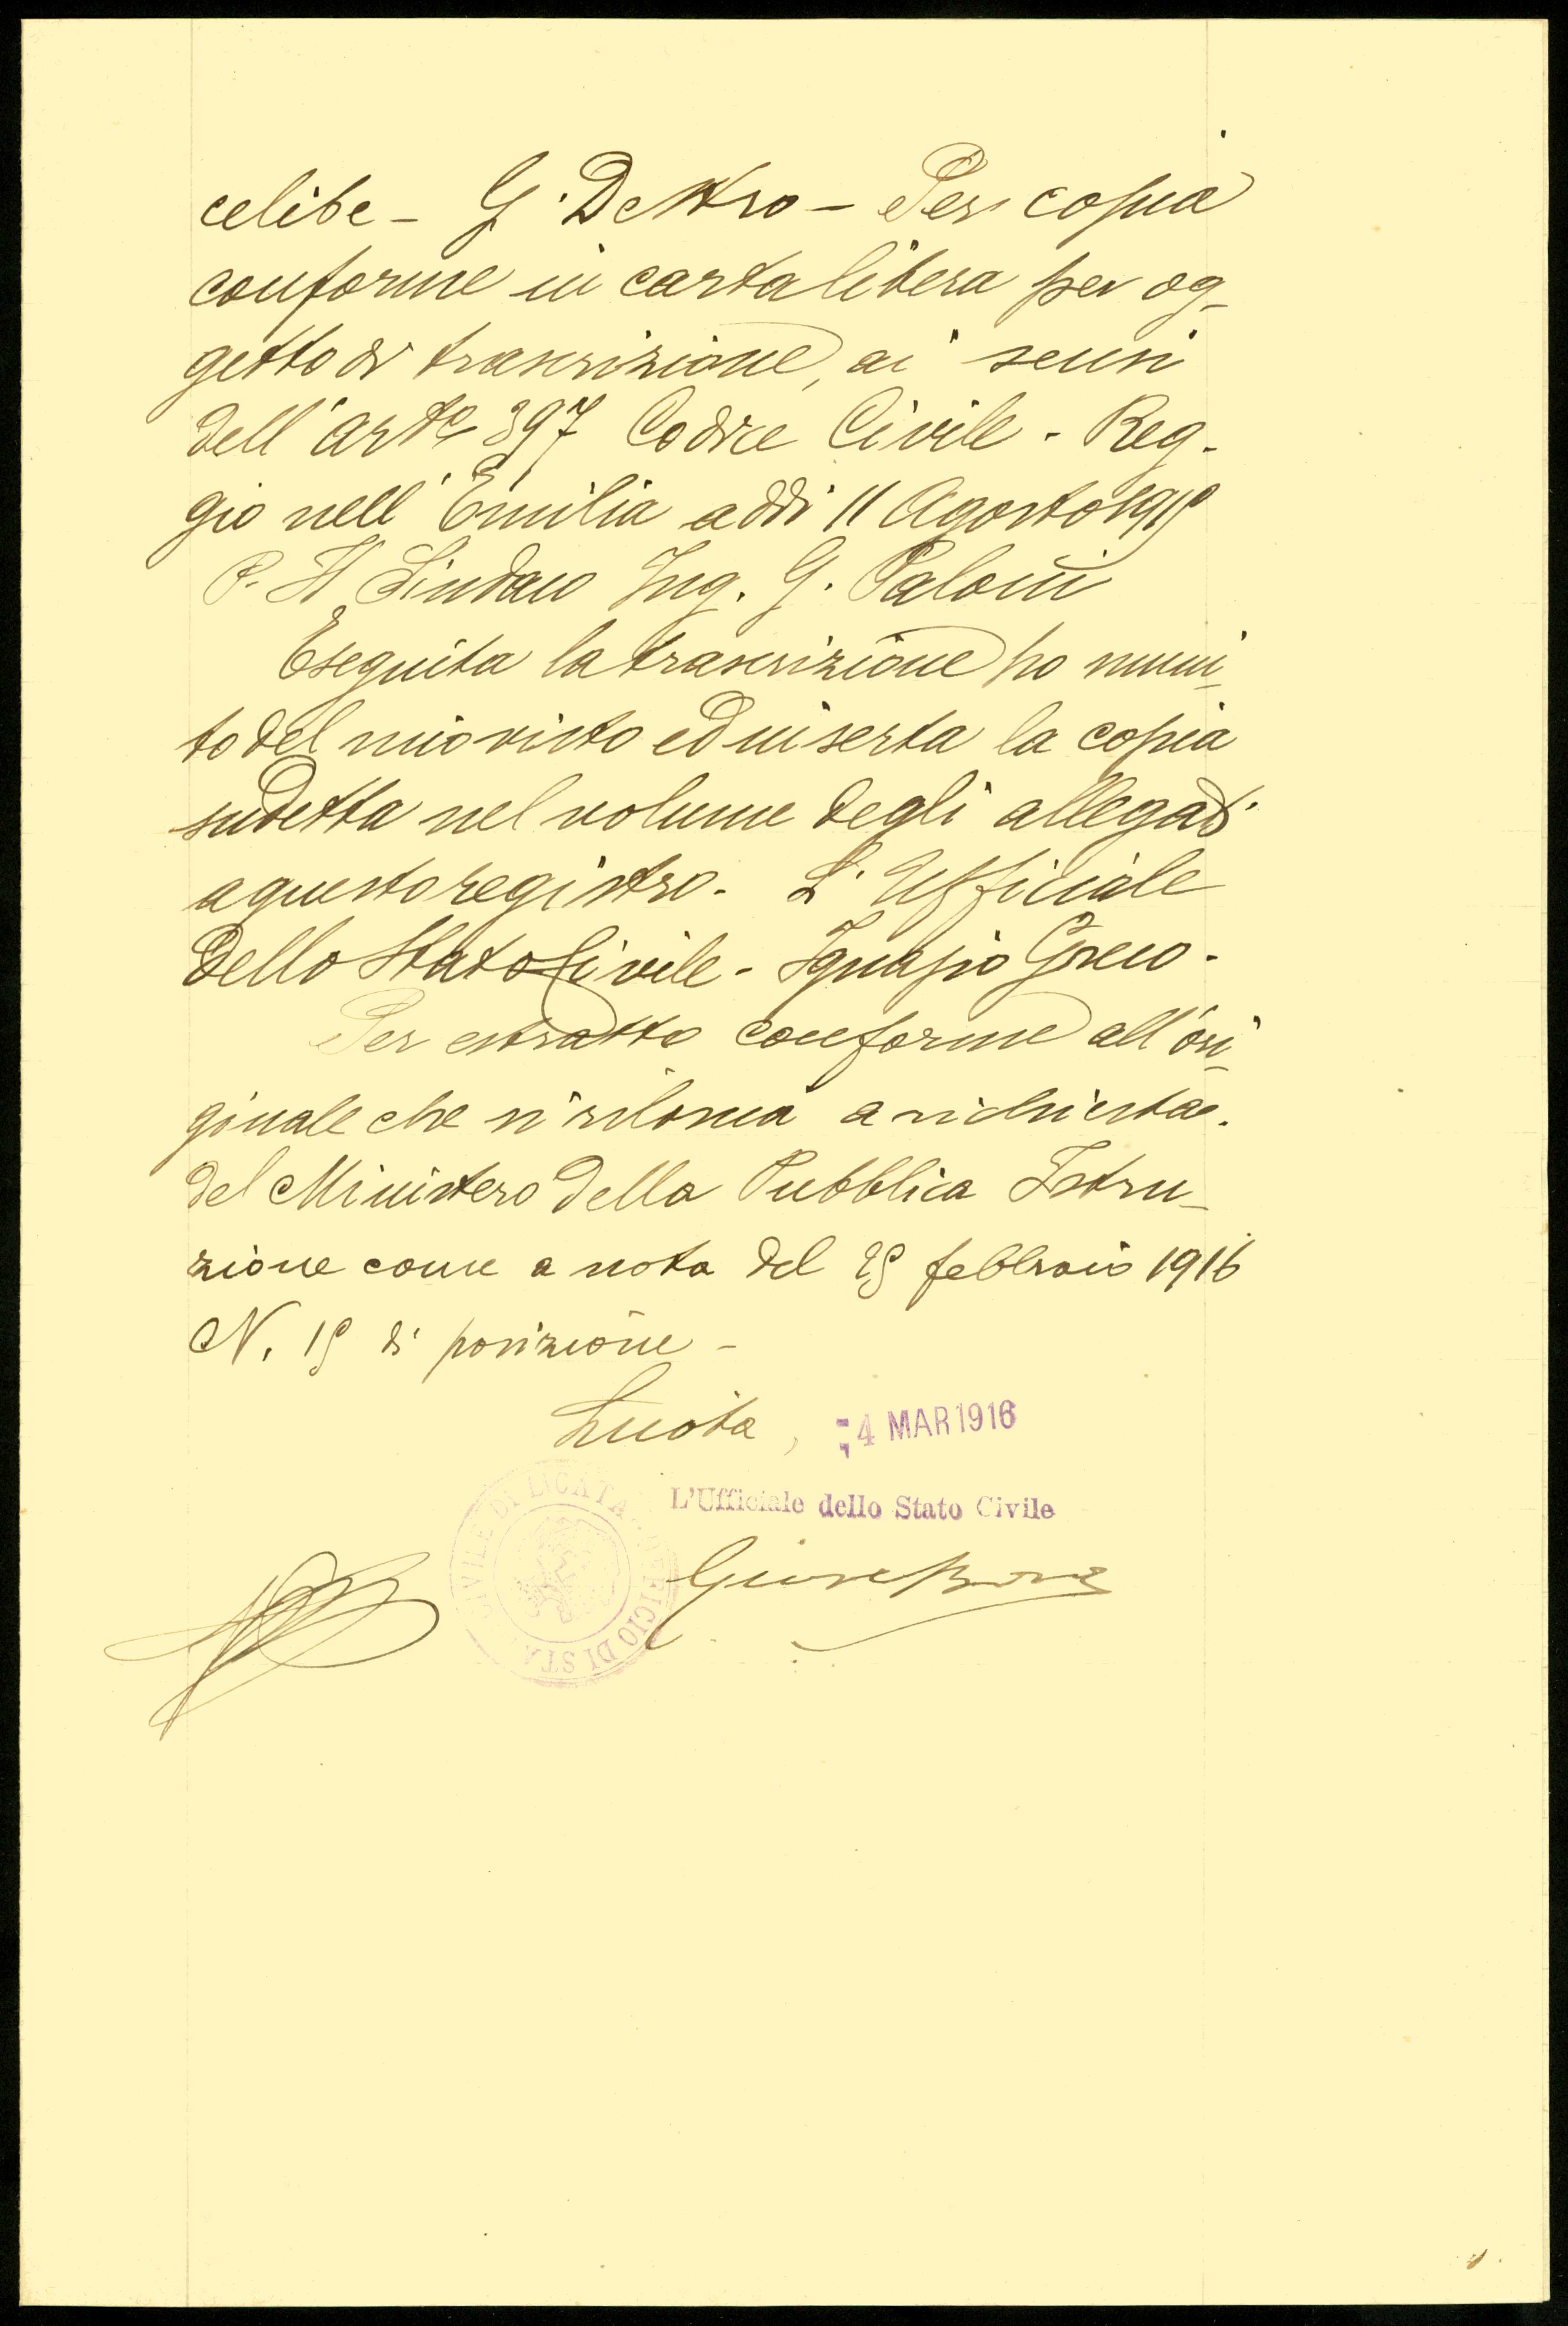 celibe - G. Destro - Per copia
conforme in carta libera per og-
getto di trascrizione, ai sensi
dell'arto 397 Codice Civile - Reg-
gio nell'Emilia addì 11 Agosto 1915
P. Il Sindaco Ing. G. Paloni
Eseguita la trascrizione ho muni-
to del mio visto ed inserta la copia
sudetta nel volume degli allegati
a questo registro. L'Ufficiale
dello Stato Civile - Ignazio Greco -
Per estratto conforme all'ori-
ginale che si rilascia a richiesta
del Ministero della Pubblica Istru-
zione come a nota del 25 febbraio 1916
N. 15 di posizione -
Licata, - 4 MAR 1916
L'Ufficiale dello Stato Civile
DI LICATA